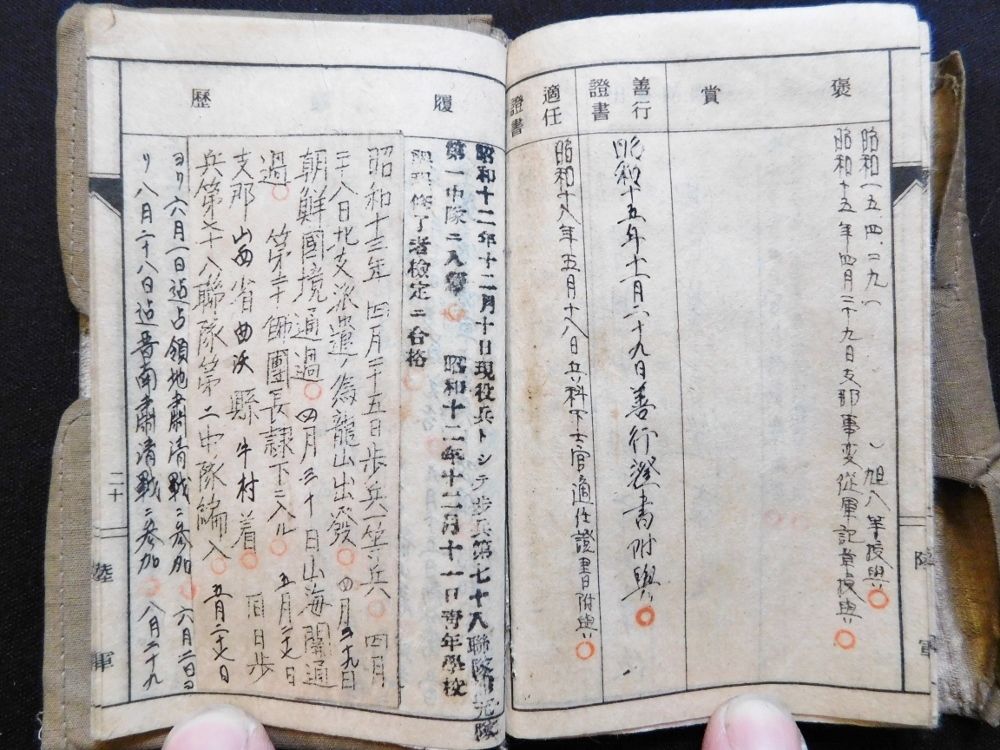 褒
賞
昭和一五、四、二九、
旭八等授與
昭和十五年四月二十九日支那事変従軍記章授與
善行
證書
昭和十五年十一月二十九日善行證書附與
適任
證書
昭和十八年五月十八日兵科下士官適任證書附與
陸軍
履歷
昭和十二年十二月十日現役兵トシテ步兵第七十八聯隊
第一中隊ニ入營 昭和十二年十二月十一日青年學校
修了者檢定ニ合格
昭和十三年 四月二十五日步兵一等兵 四月
二十八日北支派遣ノ為龍山出發 四月二十九日
朝鮮國境通過 四月三十日山海關通
過 第二十師團長隷下ニ入ル 五月二十七日
支那山西省曲沃縣牛村着 同日步
兵第七十八聯隊第二中隊編入 五月二十七日
ヨリ六月一日迠占領地肅清戰ニ參加 六月二日ヨ
リ八月二十八日迠晋南肅清戰ニ參加 八月二十九
二十
陸軍